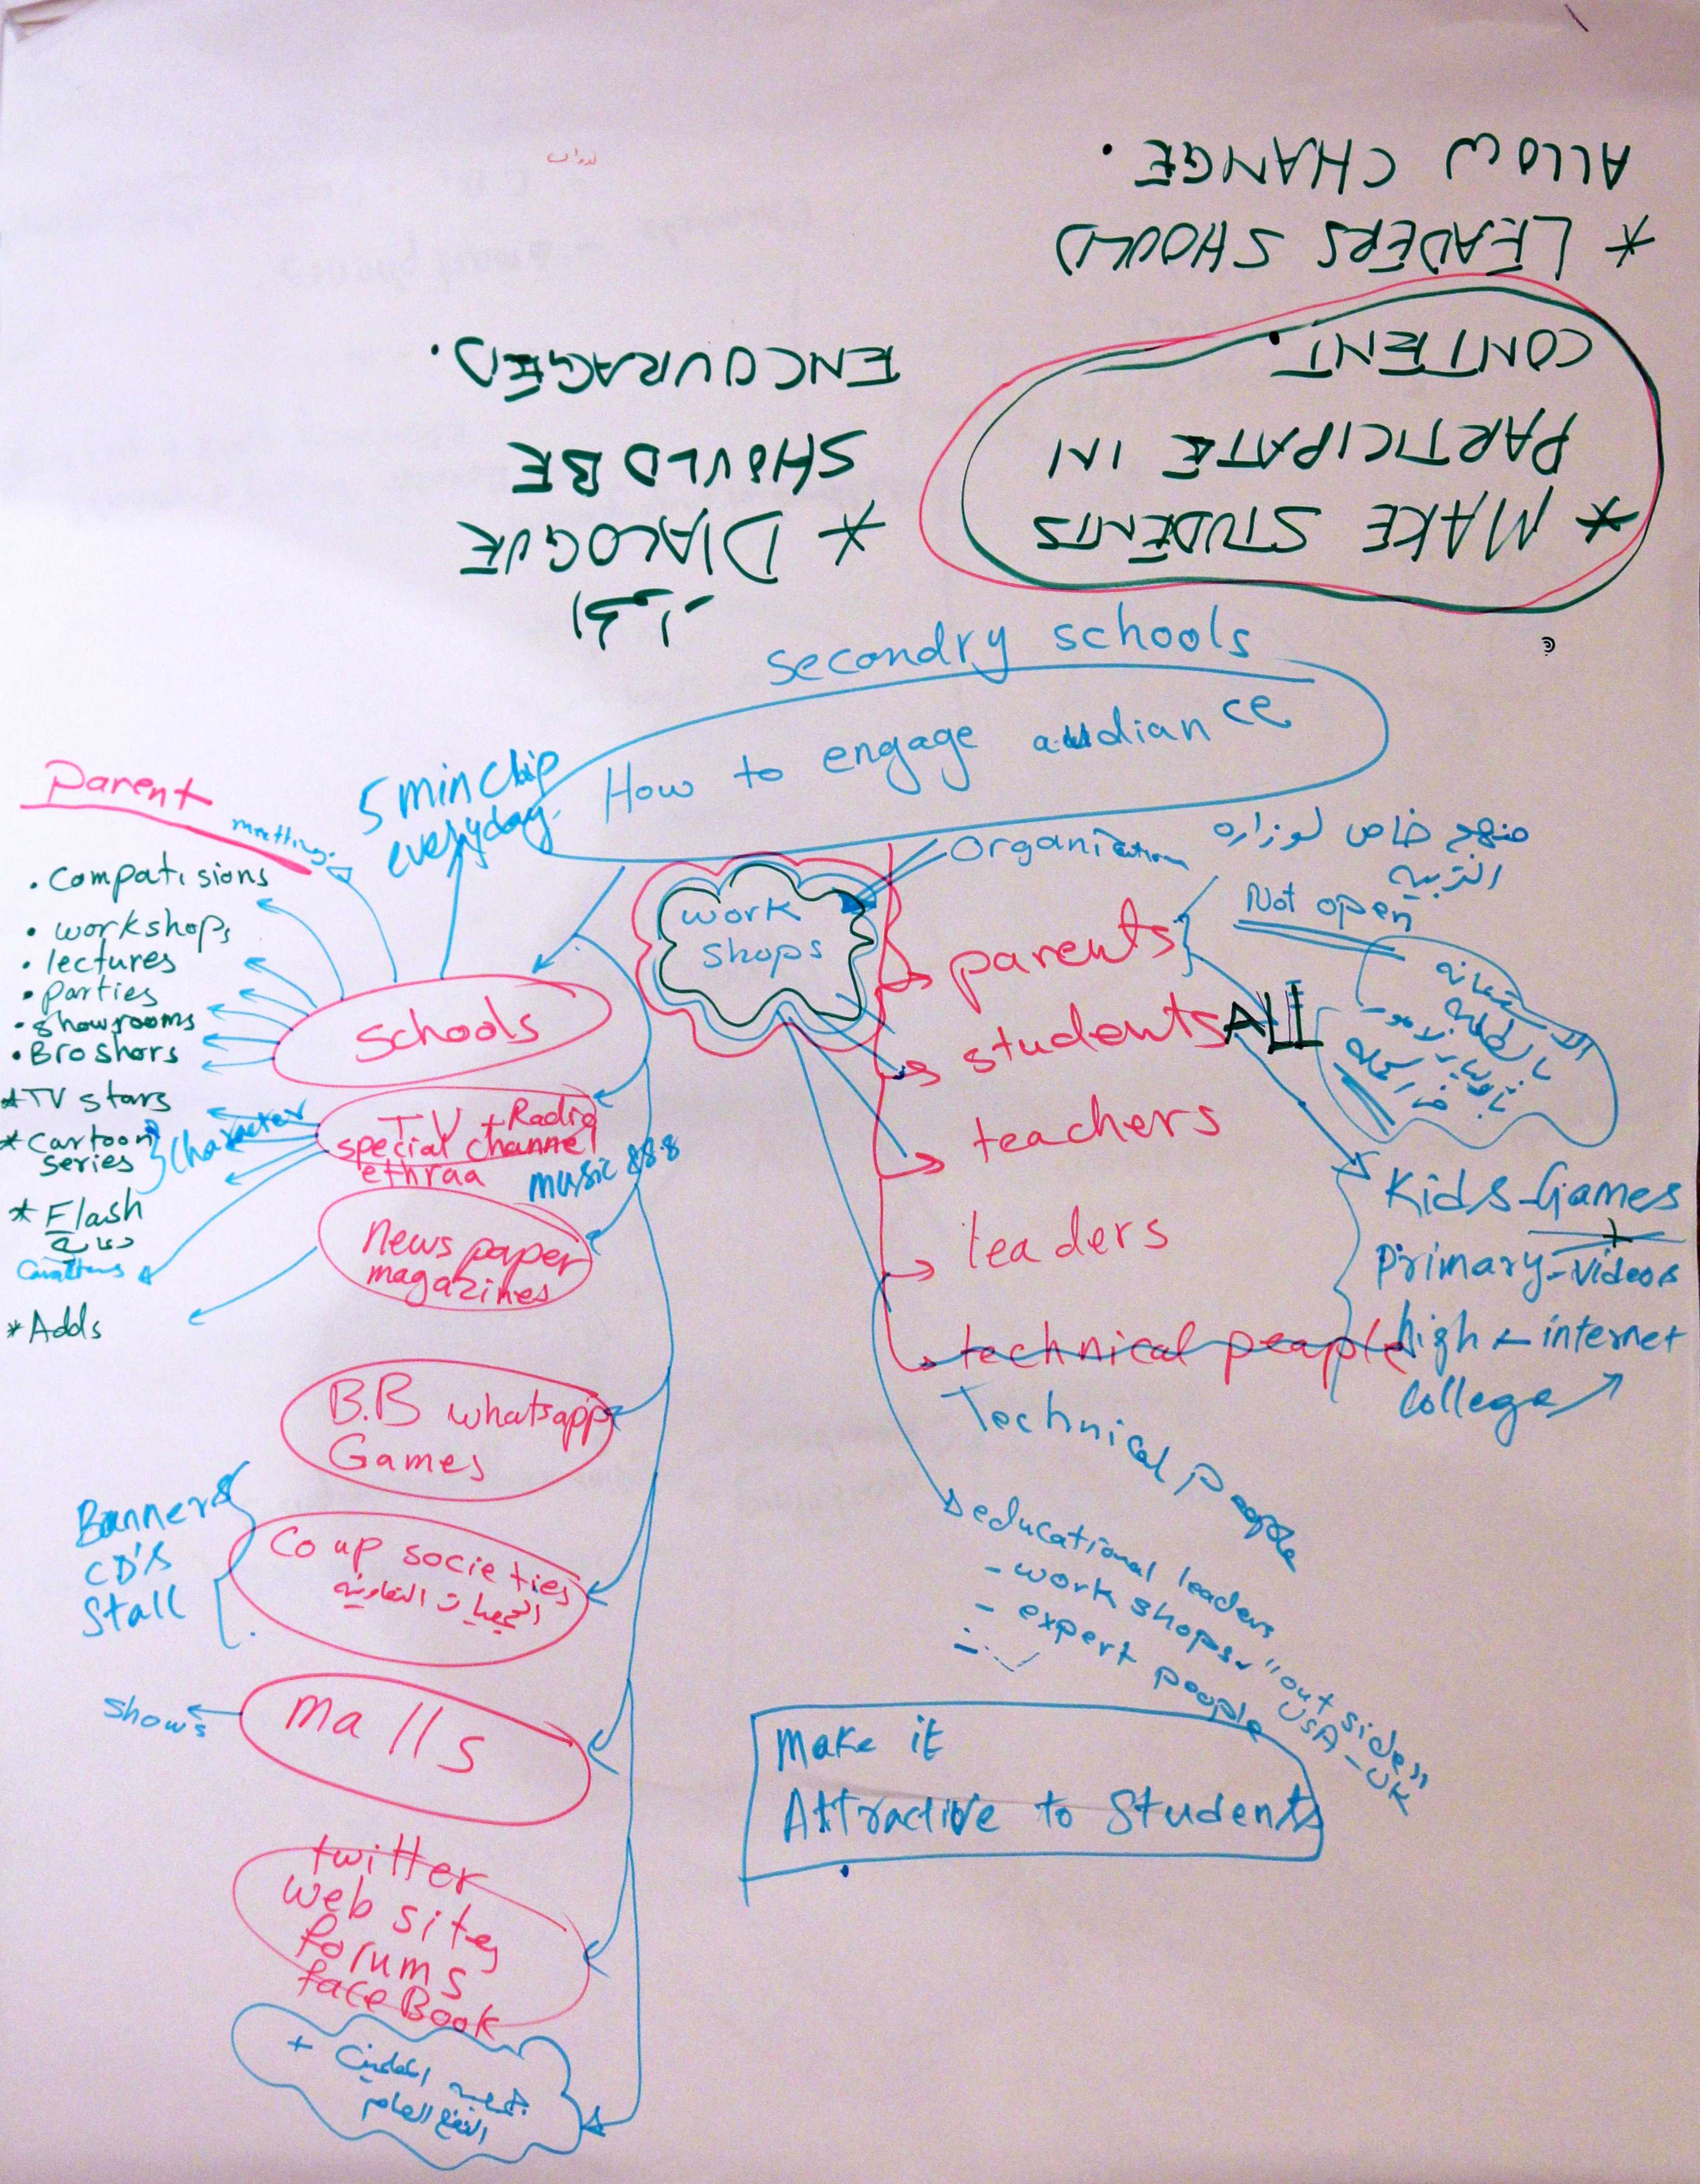 * LEADERS SHOULD
ALLOW CHANGE.
* MAKE STUDENTS
PARTICIPATE IN
CONTENT.
* DIALOGUE
SHOULD BE
ENCOURAGED.
secondry schools
How to engage audiance
5 min Clip
everyday
Parent
meetting
. Compatisions
• workshops
• lectures
• parties
• showrooms
• Broshors
schools
work
shops
Organization
منهج خاص لوزاره
التربيه
Not open
parents
students ALL
teachers
leaders
technical peaple
Technical people
الاستعانه
بالطلبه
Kids - Games
Primary - videos
high - internet
College
* TV stars
* Cartoon
series
Character
* Flash
دعاية
* Adds
TV + Radio
special channel
ethraa
music 88.8
News paper
magazines
B.B whatsapp
Games
Banners
CD's
Stall
Co up societies
الجمعيات التعاونيه
Shows
malls
twitter
web sites
forums
face Book
+ جمعيه المعلمين
النفع العام
educational leaders
- work shops - "out side"
USA - UK
- expert people
Make it
Attractive to Students